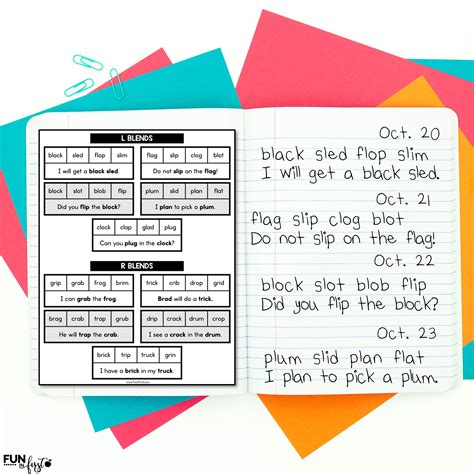 L BLENDS
black sled flop slim
I will get a black sled.
flag slip clog blot
Do not slip on the flag!
block slot blob flip
Did you flip the block?
plum slid plan flat
I plan to pick a plum.
clock clap glad plug
Can you plug in the clock?
R BLENDS
grip grab frog
I can grab the frog.
trick
Brad will do a trick.
trap crab
He will trap the crab.
crack drum
I see a crack in the drum.
brick trip truck grin
I have a brick in my truck.
Oct. 20
black sled flop slim
I will get a black sled.
Oct. 21
flag slip clog blot
Do not slip on the flag!
Oct. 22
block slot blob flip
Did you flip the block?
Oct. 23
plum slid plan flat
I plan to pick a plum.
FUN in first